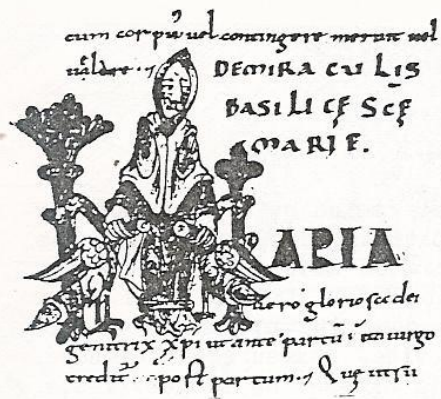 cum corpus vel contingere meruit vel
valde
DE MIRACULIS
BASILICE SCE
MARIE.
ARIA
vero gloriosa dei
genitrix xpi ut ante partu virgo
creditur post partum